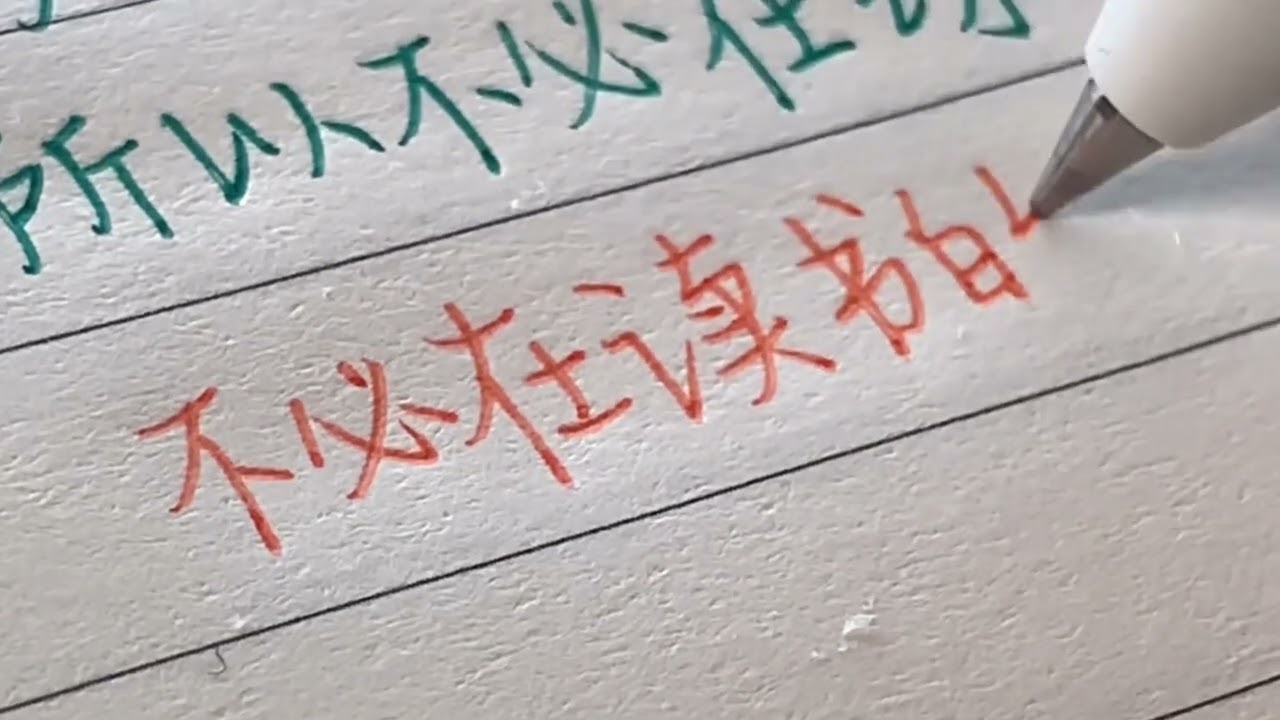 所以不必在
不必在读书的